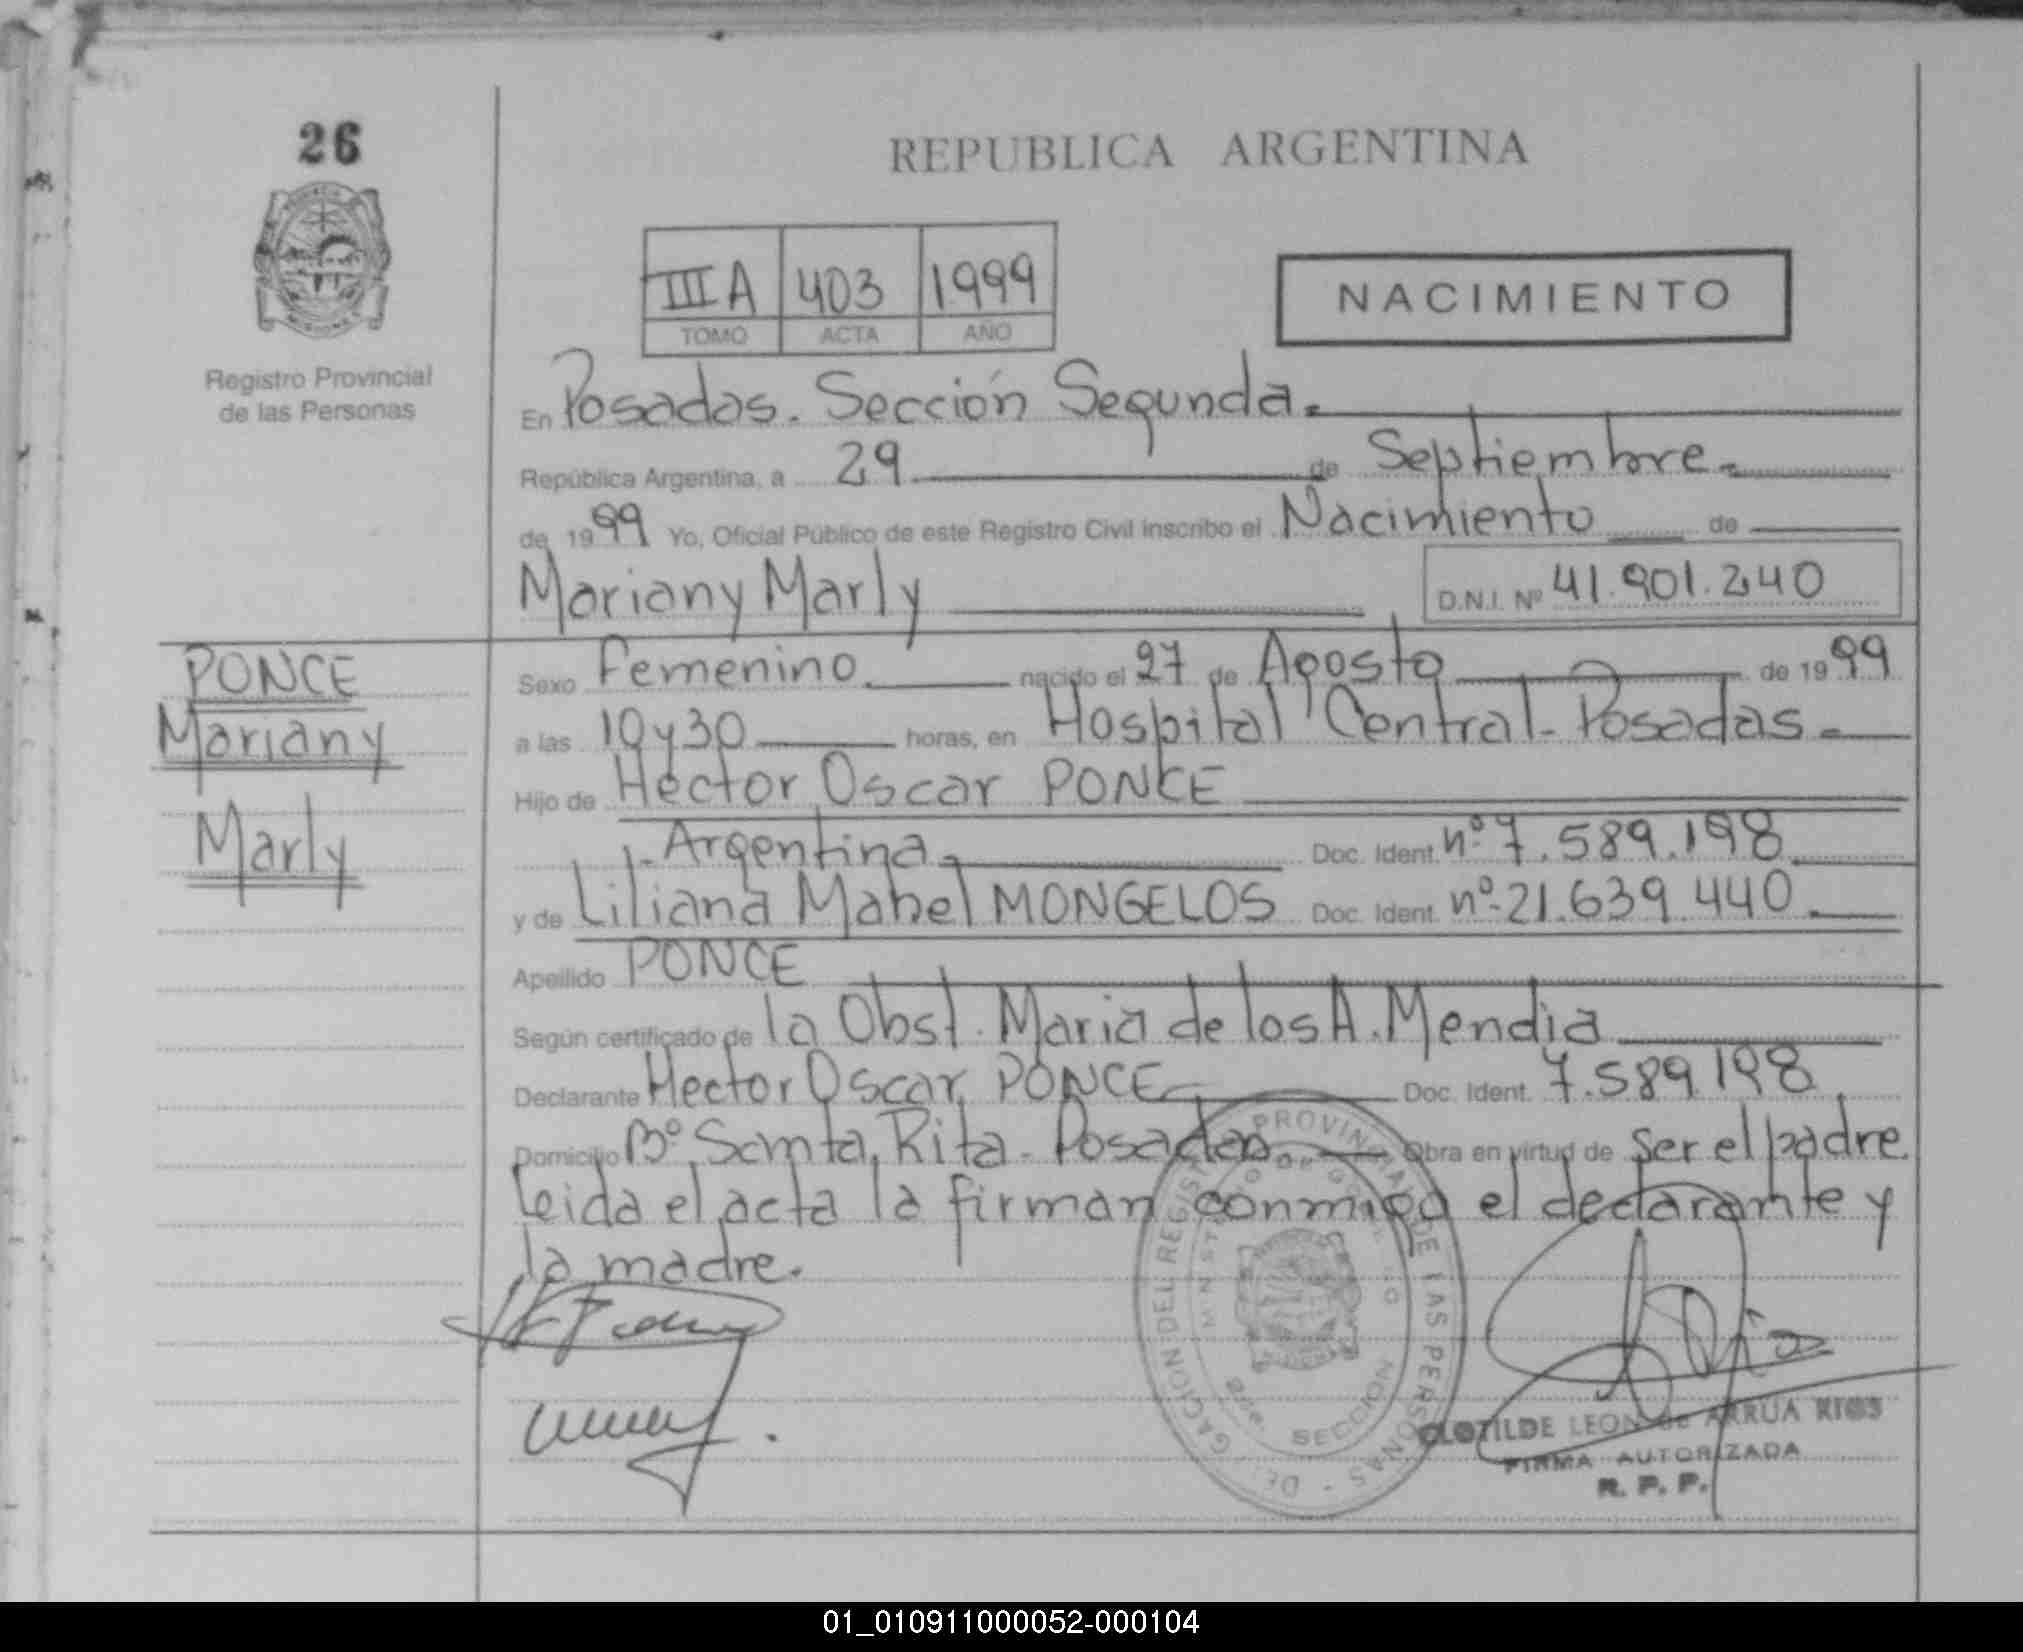 26
REPUBLICA ARGENTINA
IIIA 403 1999
TOMO ACTA AÑO
NACIMIENTO
Registro Provincial
de las Personas
En Posadas. Sección Segunda.
República Argentina, a 29 de Septiembre.
de 1999 Yo, Oficial Público de este Registro Civil inscribo el Nacimiento de
Mariany Marly D.N.I. Nº 41.901.240
PONCE
Mariany
Marly
Sexo Femenino nacido el 27 de Agosto de 1999
a las 10 y 30 horas, en Hospital Central - Posadas.
Hijo de Hector Oscar PONCE
Argentina. Doc. Ident. nº 7.589.198
y de Liliana Mabel MONGELOS Doc. Ident. nº 21.639.440.
Apellido PONCE
Según certificado de la Obst. Maria de los A. Mendia
Declarante Hector Oscar PONCE Doc. Ident. 7.589.198
Domicilio Bº Santa Rita - Posadas. Obra en virtud de ser el padre
leida el acta la firman conmigo el declarante y
la madre.
DELEGACION DEL REGISTRO PROVINCIAL DE LAS PERSONAS
MINISTERIO DE GOBIERNO
SECCION
CLOTILDE LEON de ARRUA RIOS
FIRMA AUTORIZADA
R. P. P.
01_010911000052-000104